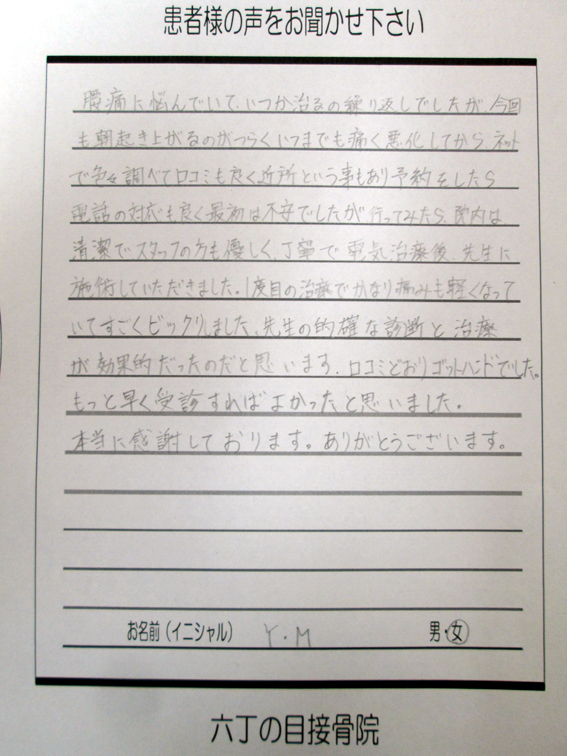 患者様の声をお聞かせ下さい
腰痛に悩んでいて、いつか治るの繰り返しでしたが、今回
も朝起き上がるのがつらくいつまでも痛く悪化してから、ネット
で色々調べて口コミも良く近所という事もあり予約をしたら
電話の対応も良く最初は不安でしたが行ってみたら、院内は
清潔でスタッフの方も優しく、丁寧で電気治療後、先生に
施術していただきました。1度目の治療でかなり痛みも軽くなって
いてすごくビックリしました、先生の的確な診断と治療
が効果的だったのだと思います、口コミどおりゴットハンドでした。
もっと早く受診すればよかったと思いました。
本当に感謝しております。ありがとうございます。
お名前(イニシャル) Y.M 男・女
六丁の目接骨院